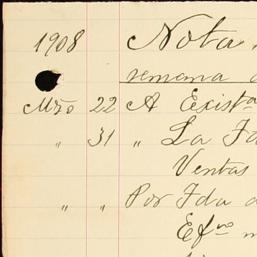 1908 Nota
semema
Mzo 22 A Exista
" 31 " La
Ventas
" " Por Fda
Efvos